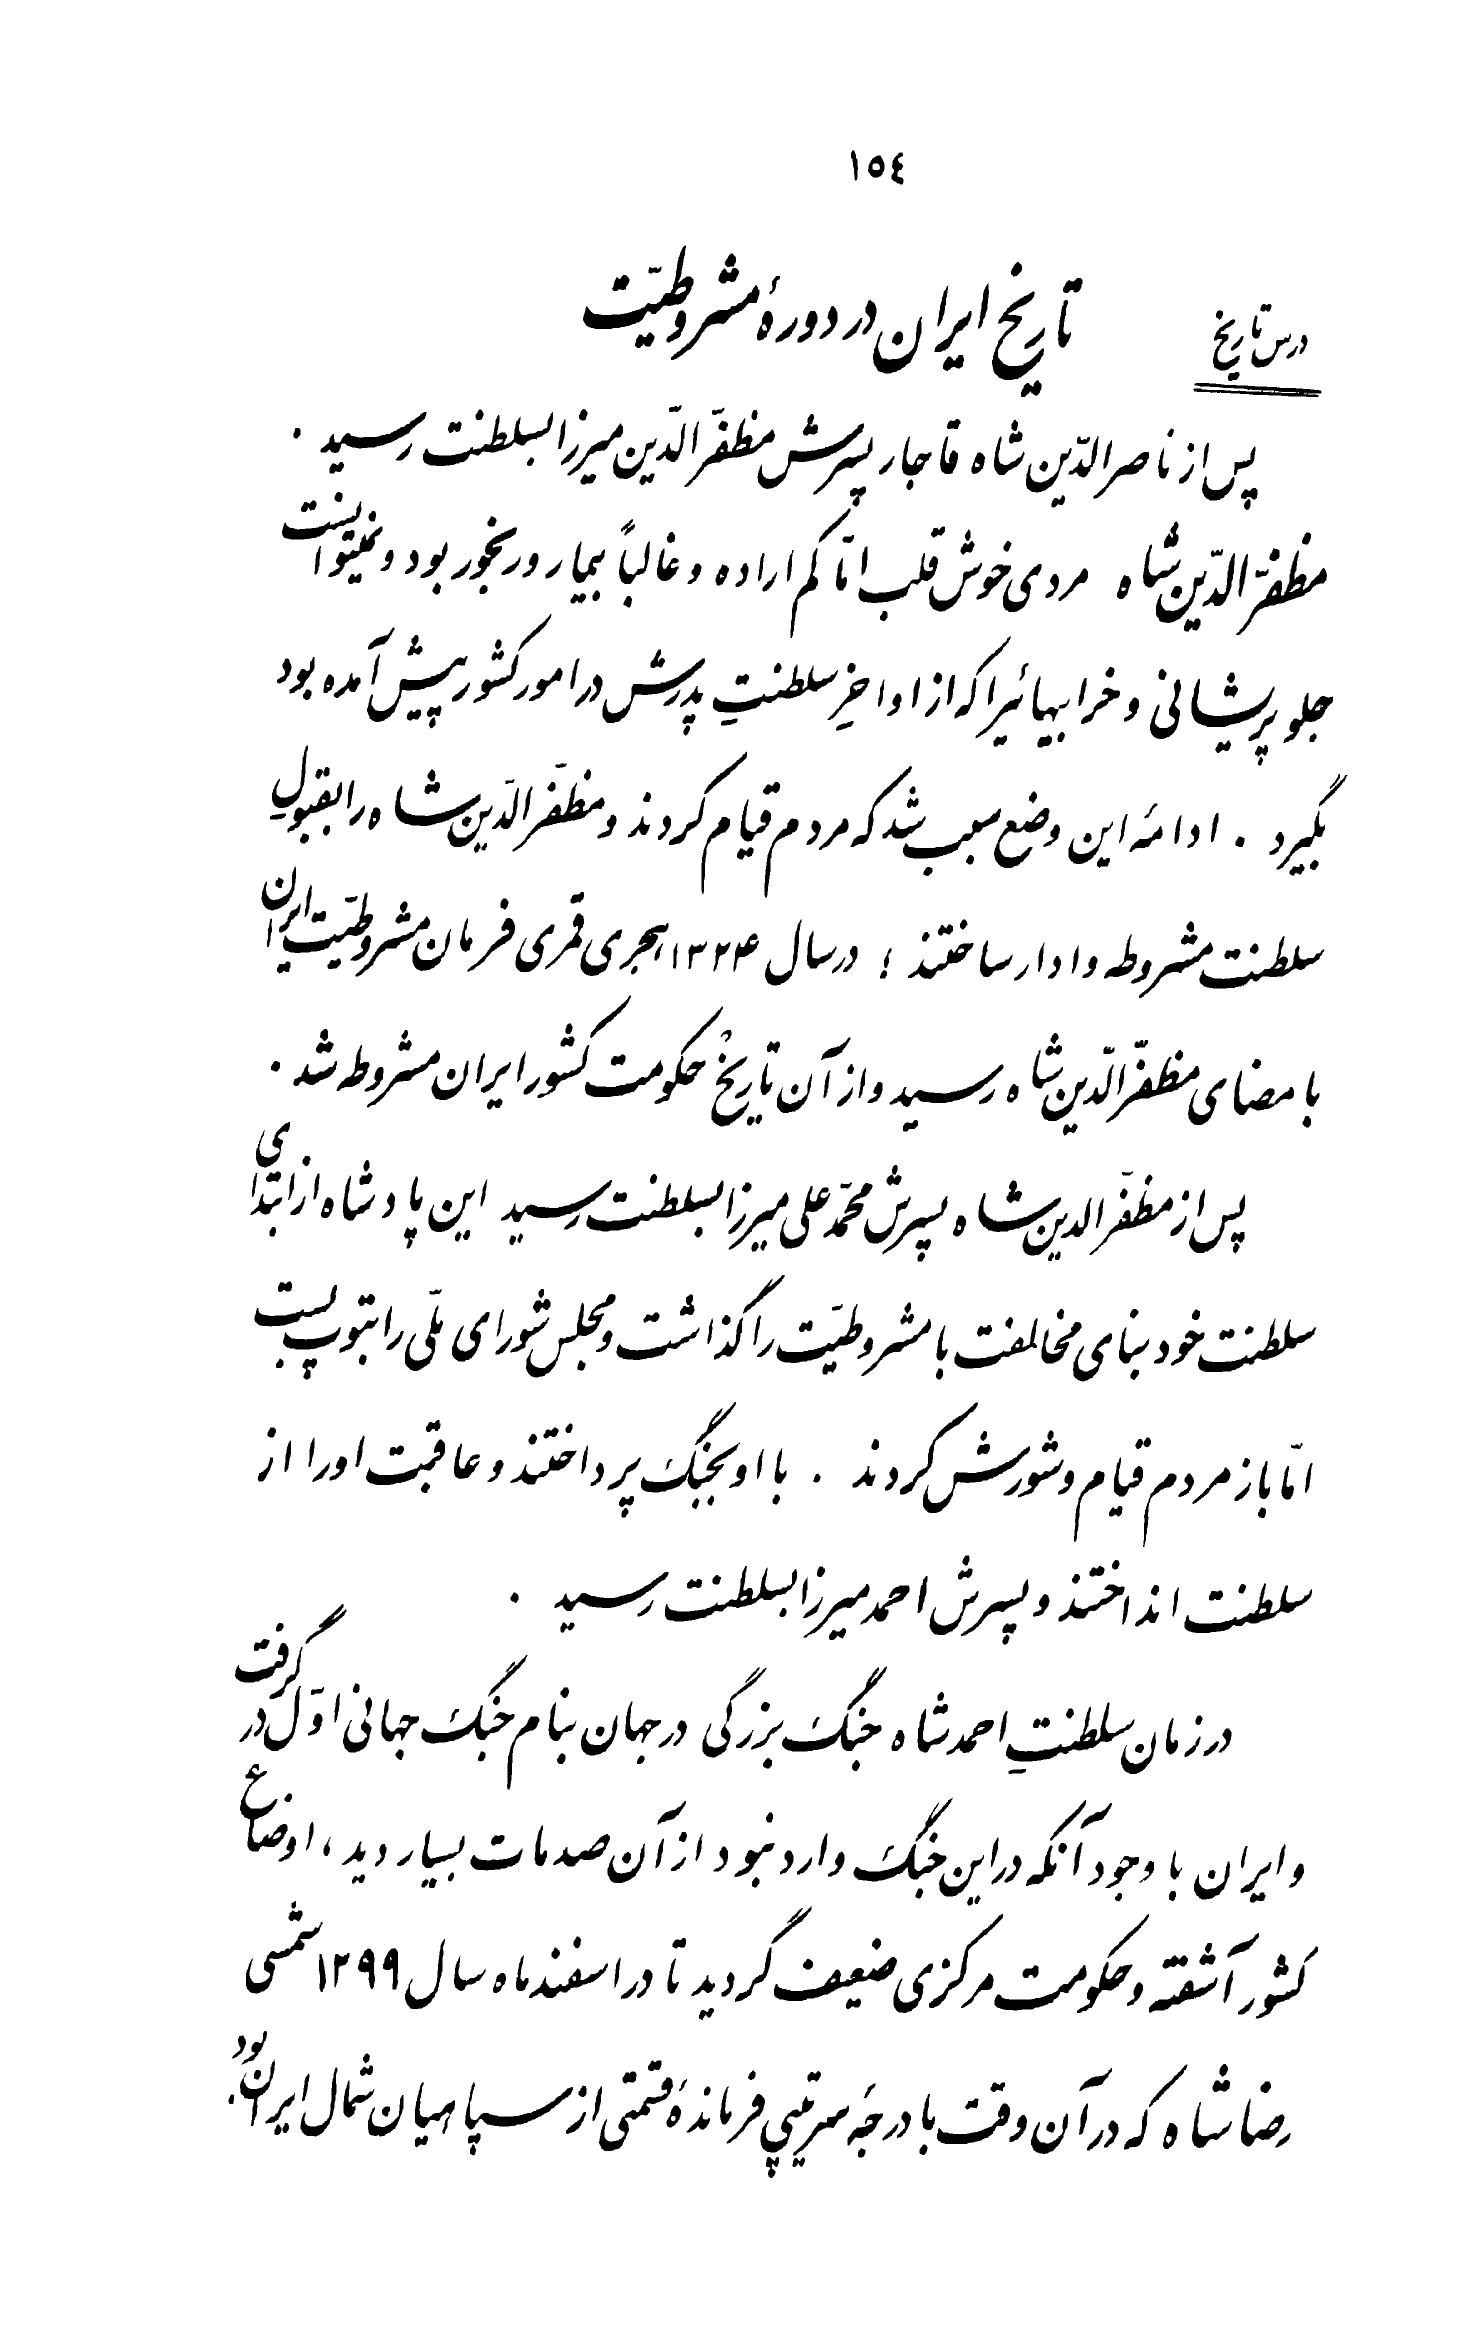 ١٥٤
درس تاریخ
تاریخ ایران در دورهٔ مشروطیّت
پس از ناصرالدّین شاه قاجار پسرش مظفّرالدّین میرزا بسلطنت رسید .
مظفّرالدّین شاه مردی خوش قلب امّا کم اراده و غالباً بیمار و رنجور بود و نمیتوانست
جلو پریشانی و خرابیهائیرا که از اواخرِ سلطنتِ پدرش در امور کشور پیش آمده بود
بگیرد . ادامهٔ این وضع سبب شد که مردم قیام کردند و مظفّرالدّین شاه را بقبولِ
سلطنت مشروطه وادار ساختند ؛ در سال ۱۳۲۴ هجری قمری فرمان مشروطیّت ایران
بامضای مظفّرالدّین شاه رسید و از آن تاریخ حکومت کشور ایران مشروطه شد .
پس از مظفّرالدین شاه پسرش محمّد علی میرزا بسلطنت رسید این پادشاه از ابتدای
سلطنت خود بنای مخالفت با مشروطیّت را گذاشت و مجلس شورای ملّی را بتوپ بست
امّا باز مردم قیام و شورش کردند . با او بجنگ پرداختند و عاقبت او را از
سلطنت انداختند و پسرش احمد میرزا بسلطنت رسید .
در زمان سلطنتِ احمد شاه جنگ بزرگی در جهان بنام جنگ جهانی اوّل در گرفت
و ایران با وجود آنکه در این جنگ وارد نبود از آن صدمات بسیار دید ، اوضاع
کشور آشفته و حکومت مرکزی ضعیف گردید تا در اسفند ماه سال ۱۲۹۹ شمسی
رضا شاه که در آن وقت با درجهٔ سرتیپی فرماندهٔ قسمتی از سپاهیان شمال ایران بود .